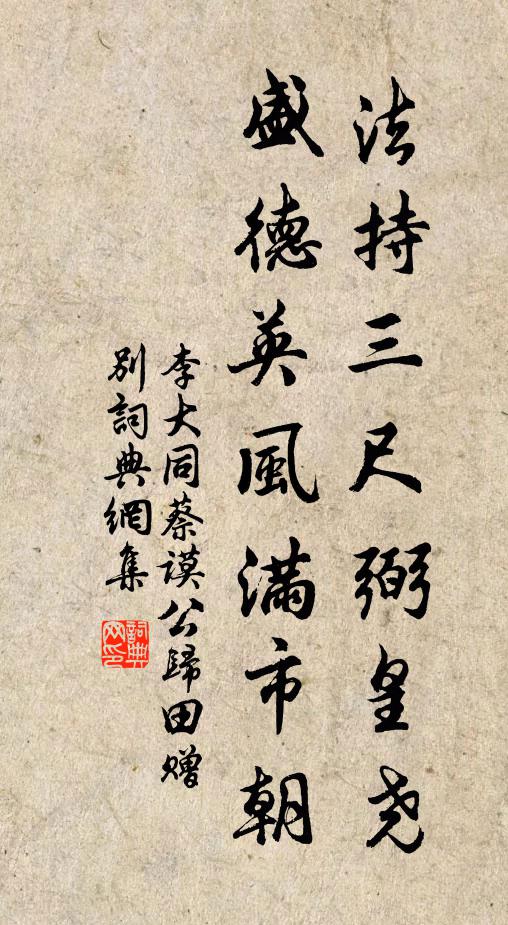 法持三尺弼皇尧
盛德英風滿市朝
李大同蔡謨公歸田赠
別詞典網集
詞典網印